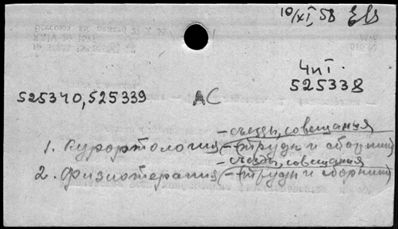 10/XI, 58
4иI
525338
525340, 525339 АС
- съезды, совещания
1. Курортология (- труды и сборники)
- съезды, совещания
2. Физиотерапия (- труды и сборники)